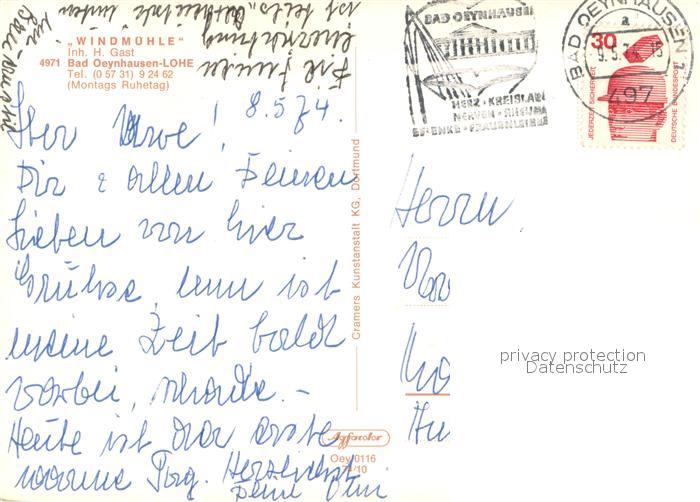 „WINDMÜHLE"
Inh. H. Gast
4971 Bad Oeynhausen-LOHE
Tel. (0 57 31) 9 24 62
(Montags Ruhetag)
8.5.74.
Lieber Uwe!
Dir & allen Deinen
Lieben von hier
Grüße, nun ist
meine Zeit bald
vorbei, schade. –
Heute ist der erste
warme Tag. Herzlichst
Deine
Cramers Kunstanstalt KG, Dortmund
Agfacolor
Oey 0116
BAD OEYNHAUSEN
HERZ • KREISLAUF
NERVEN • RHEUMA
GELENKE • FRAUENLEIDEN
BAD OEYNHAUSEN 1
a
497
30
JEDERZEIT SICHERHEIT
DEUTSCHE BUNDESPOST
Herrn
privacy protection
Datenschutz